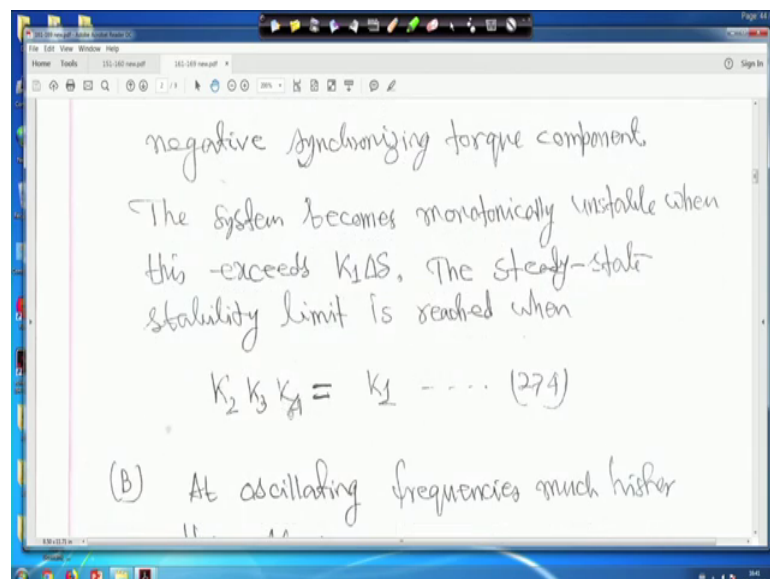 Page 44
161-169 new.pdf - Adobe Acrobat Reader DC
File Edit View Window Help
Home Tools 151-160 new.pdf 161-169 new.pdf × Sign In
2 / 9
negative synchronizing torque component.
The system becomes monotonically unstable when
this exceeds K1ΔS. The steady-state
stability limit is reached when
K2 K3 K4 = K1 ---- (274)
(B) At oscillating frequencies much higher
8.50 x 11.71 in
16:41